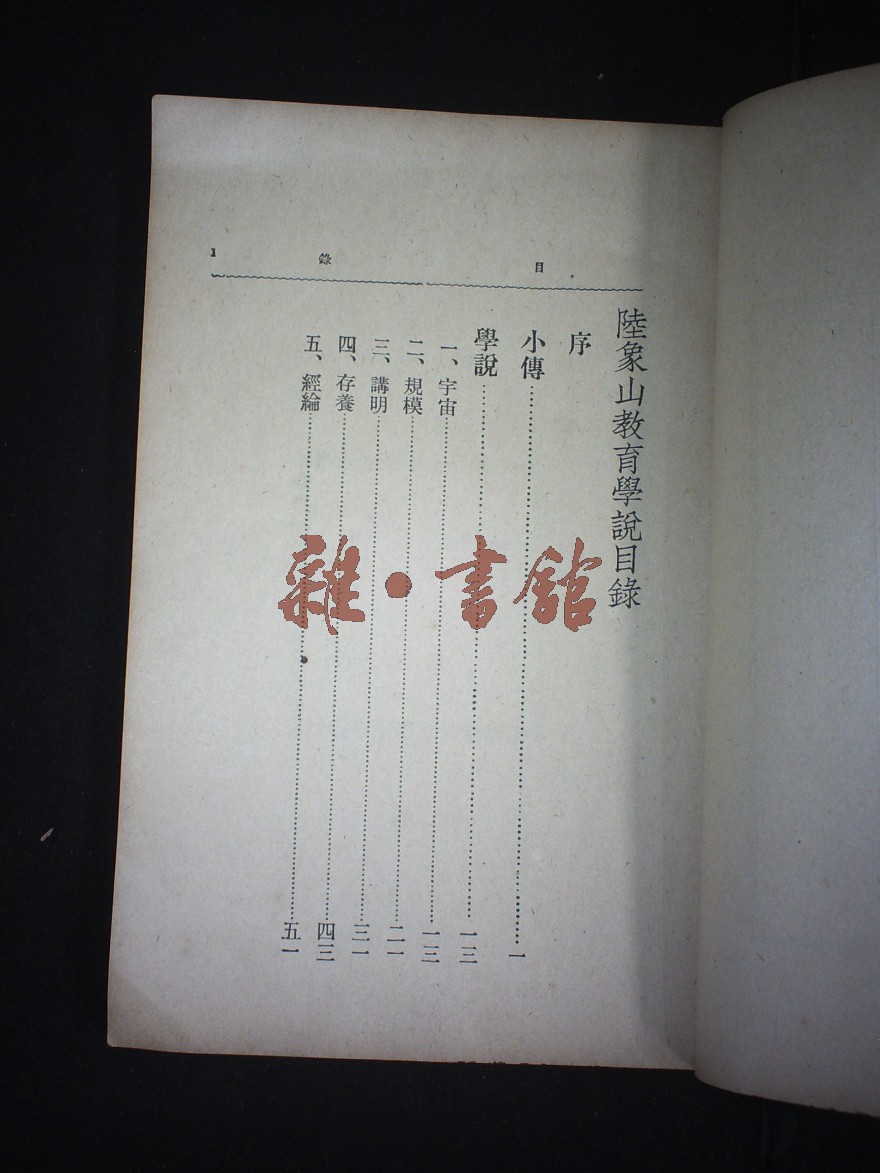 目錄 1
陸象山教育學說目錄
序
小傳……一
學說……一三
一、宇宙……一三
二、規模……二一
三、講明……三一
四、存養……四三
五、經綸……五一
雜·書館